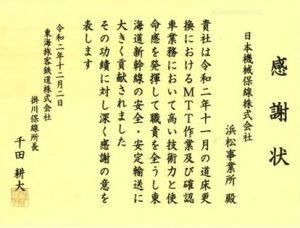 感謝状
日本機械保線株式会社
浜松事業所 殿
貴社は令和二年十一月の道床更
換におけるMTT作業及び確認
車業務において高い技術力と使
命感を発揮して職責を全うし東
海道新幹線の安全・安定輸送に
大きく貢献されました
その功績に対し深く感謝の意を
表します
令和二年十二月二日
東海旅客鉄道株式会社
掛川保線所長
千田 耕大